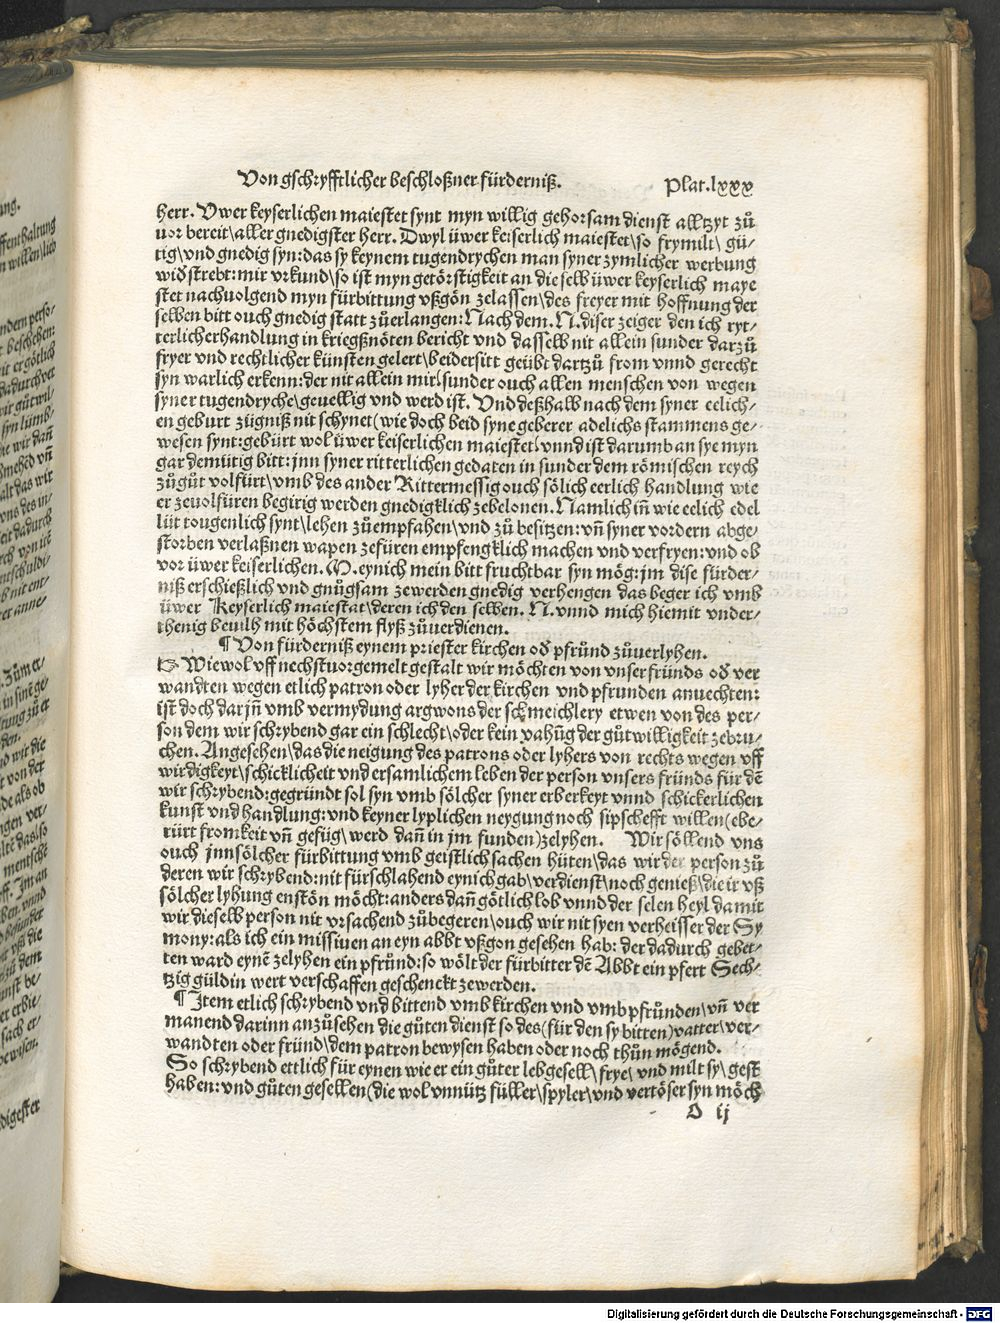 Von gschryfftlicher beschloßner fürderniß.
Plat.lxxx
herr. Vwer keyserlichen maiestet synt myn willig gehorsam dienst alltzyt zů
uor bereit\aller gnedigster herr. Dwyl üwer keiserlich maiestet\so frymilt\ gü⸗
tig\vnd gnedig syn:das sy keynem tugendrychen man syner zymlicher werbung
widstrebt:mir vrkund\so ist myn getörstigkeit an die selb üwer keyserlich maye
stet nachuolgend myn fürbittung vßgôn zelassen\des freyer mit hoffnung der
selben bitt ouch gnedig statt zůerlangen:Nach dem. N.diser zeiger den ich ryt⸗
terlicherhandlung in kriegßnöten bericht vnd dasselb nit allein sunder darzů
fryer vnd rechtlicher künsten gelert\beidersitt geübt dartzů from vnnd gerecht
syn warlich erkenn:der nit allein mir\sunder ouch allen menschen von wegen
syner tugendryche\geuellig vnd werd ist. Vnd deßhalb nach dem syner eelich⸗
en geburt zügniß nit schynet(wie doch beid syne geberer adelichs stammens ge⸗
wesen synt:gebürt wol üwer keiserlichen maiestet\vnnd ist darumb an sye myn
gar demütig bitt:jnn syner ritterlichen gedaten in sunder dem römischen reych
zůgůt volfürt\vmb des ander Rittermessig ouch sölich eerlich handlung wie
er zeuolfüren begirig werden gnedigklich zebelonen. Namlich in̄ wie eelich edel
lüt tougenlich synt\lehen zůempfahen\vnd zů besitzen:vn̄ syner vordern abge⸗
storben verlaßnen wapen zefüren empfengklich machen vnd verfryen:vnd ob
vor üwer keiserlichen. M.eynich mein bitt fruchtbar syn mög:jm dise fürder⸗
niß erschießlich vnd gnůgsam zewerden gnedig verhengen das beger ich vmb
üwer Keyserlich maiestat\deren ich den selben. N.vnnd mich hiemit vnder⸗
thenig beuilh mit höchstem flyß zůuerdienen.
¶Von fürderniß eynem priester kirchen od pfründ zůuerlyhen.
☞ Wiewol vff nechstuorgemelt gestalt wir möchten von vnser fründs od ver
wandten wegen etlich patron oder lyher der kirchen vnd pfrunden anuechten:
ist doch dar jn̄ vmb vermydung argwons der schmeichlery etwen von des per⸗
son dem wir schrybend gar ein schlecht\oder kein vahüg der gůtwilligkeit zebru⸗
chen. Angesehen\das die neigung des patrons oder lyhers von rechts wegen vff
wirdigkeyt\schicklicheit vnd ersamlichem leben der person vnsers fründs für dē
wir schrybend:gegründt sol syn vmb sölcher syner erberkeyt vnnd schickerlichen
kunst vnd handlung:vnd keyner lyplichen neygung noch sipschefft willen(ebe⸗
rürt fromkeit vn̄ gefüg\werd dan̄ in jm funden)zelyhen. Wir söllend vns
ouch jnn sölcher fürbittung vmb geistlich sachen hüten\das wir der person zů
deren wir schrybend:nit fürschlahend eynich gab\verdienst\noch genieß\die ir vß
sölcher lyhung enstôn möcht:anders dan̄ götlich lob vnnd der selen heyl damit
wir die selb person nit vrsachend zůbegeren\ouch wir nit syen verheisser der Sy
mony:als ich ein missiuen an eyn abbt vßgon gesehen hab: der dadurch gebet⸗
ten ward eynē zelyhen ein pfründ:so wölt der fürbitter dē Abbt ein pfert Sech⸗
tzig güldin wert verschaffen geschenckt zewerden.
¶Item etlich schrybend vnd bittend vmb kirchen vnd vmb pfründen\vn̄ ver
manend darinn anzůsehen die gůten dienst so des(für den sy bitten)vatter\ver⸗
wandten oder fründ\dem patron bewysen haben oder noch thůn mögend.
So schrybend ettlich für eynen wie er ein gůter lebgesell\frye\ vnd milt sy\ gest
haben:vnd gůten gesellen(die wol vnnütz füller\spyler\vnd vertöser syn möch
O ij
Digitalisierung gefördert durch die Deutsche Forschungsgemeinschaft - DFG